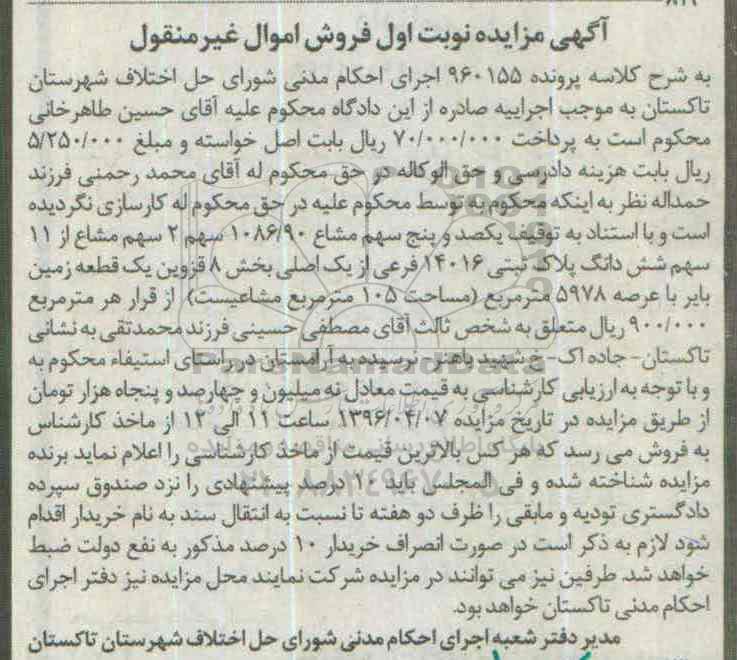 آگهی مزایده نوبت اول فروش اموال غیرمنقول
به شرح کلاسه پرونده ۹۶۰۱۵۵ اجرای احکام مدنی شورای حل اختلاف شهرستان
تاکستان به موجب اجراییه صادره از این دادگاه محکوم علیه آقای حسین طاهرخانی
محکوم است به پرداخت ۷۰/۰۰۰/۰۰۰ ریال بابت اصل خواسته و مبلغ ۵/۲۵۰/۰۰۰
ریال بابت هزینه دادرسی و حق الوکاله در حق محکوم له آقای محمد رحمنی فرزند
حمداله نظر به اینکه محکوم به توسط محکوم علیه در حق محکوم له کارسازی نگردیده
است و با استناد به توقیف یکصد و پنج سهم مشاع ۱۰۸۶/۹۰ سهم ۲ سهم مشاع از ۱۱
سهم شش دانگ پلاک ثبتی ۱۴۰۱۶ فرعی از یک اصلی بخش ۸ قزوین یک قطعه زمین
بایر با عرصه ۵۹۷۸ مترمربع (مساحت ۱۰۵ مترمربع مشاعیست) از قرار هر مترمربع
۹۰۰/۰۰۰ ریال متعلق به شخص ثالث آقای مصطفی حسینی فرزند محمدتقی به نشانی
تاکستان- جاده اک- خ شهید باهنر- نرسیده به آرامستان در راستای استیفاء محکوم به
و با توجه به ارزیابی کارشناسی به قیمت معادل نه میلیون و چهارصد و پنجاه هزار تومان
از طریق مزایده در تاریخ مزایده ۱۳۹۶/۰۴/۰۷ ساعت ۱۱ الی ۱۲ از ماخذ کارشناس
به فروش می رسد که هر کس بالاترین قیمت از ماخذ کارشناسی را اعلام نماید برنده
مزایده شناخته شده و فی المجلس باید ۱۰ درصد پیشنهادی را نزد صندوق سپرده
دادگستری تودیه و مابقی را ظرف دو هفته تا نسبت به انتقال سند به نام خریدار اقدام
شود لازم به ذکر است در صورت انصراف خریدار ۱۰ درصد مذکور به نفع دولت ضبط
خواهد شد. طرفین نیز می توانند در مزایده شرکت نمایند محل مزایده نیز دفتر اجرای
احکام مدنی تاکستان خواهد بود.
مدیر دفتر شعبه اجرای احکام مدنی شورای حل اختلاف شهرستان تاکستان